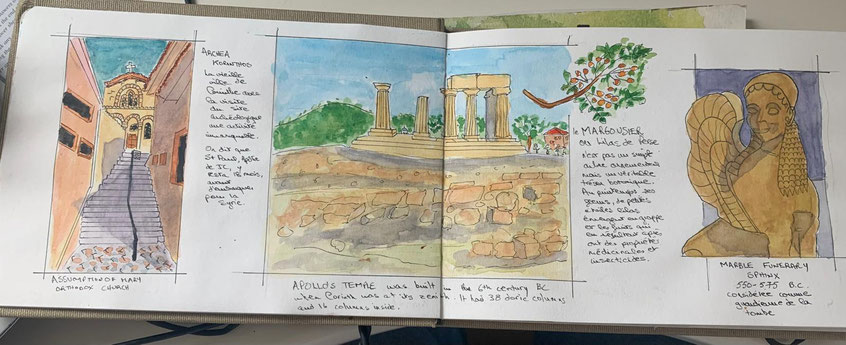 ARCHEA
KORINTHOS
La vieille
ville de
Corinthe avec
la visite
du site
archéologique
une activité
immanquable.
On dit que
St Paul, Apôtre
de JC, y
resta 18 mois,
avant
d'embarquer
pour la
Syrie.
ASSUMPTION OF MARY
ORTHODOX CHURCH
APOLLO'S TEMPLE was built in the 6th century BC
when Corinth was at its zenith. It had 38 doric columns
and 16 columns inside.
le MARGOUSIER
ou Lilas de Perse
n'est pas un simple
arbre ornemental
mais un véritable
trésor botanique.
Au printemps ses
fleurs, de petites
étoiles lilas
émergent en grappe
et les fruits qui
en résultent après
ont des propriétés
médicinales et
insecticides.
MARBLE FUNERARY
SPHINX
550-575 B.C.
considérée comme
gardienne de la
tombe